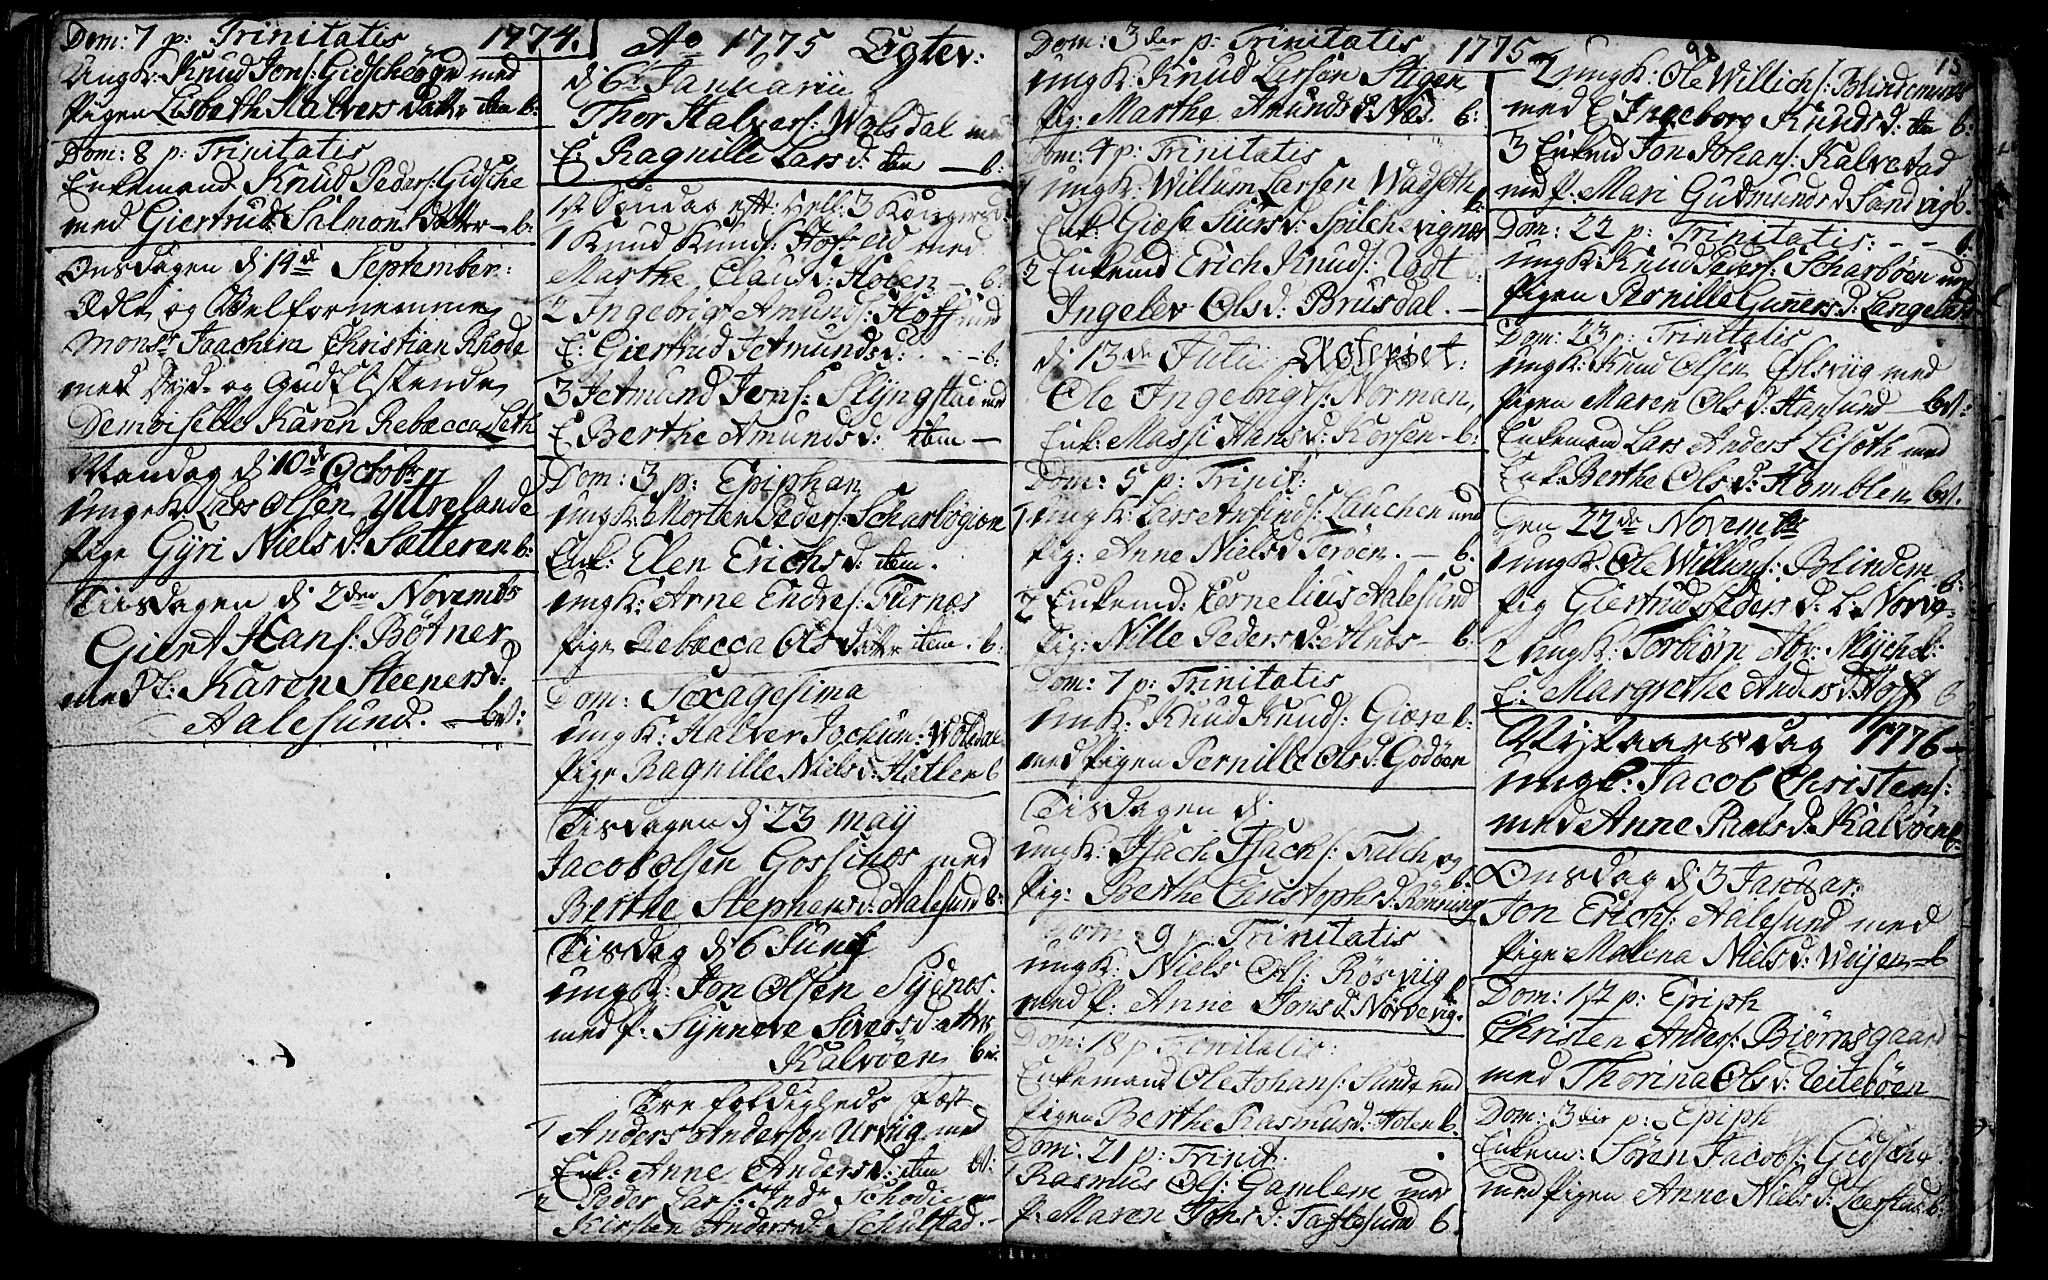 Dom: 7 p: Trinitatis 1774.
Ungk: Knud Jons: Gidscheögrd med
Pigen Lisbeth Halvers Datter item b:
Dom: 8 p: Trinitatis
Enkemand Knud Peders: Gidsche
med Giertrud Salmons Datter - b:
Onsdagen d: 14de September:
Ædle og Velfornemme
Monsr Joachim Christian Rhode
med Dyd- og Gudelskende
Demoiselle Karen Rebæcca Leth
Mandag d: 10de Octobr
ungk: Lars Olsen Yttrelande
pige Gÿri Niels d: Sætteren b:
Tiisdagen d: 2den Novembr
Giert Hans: Bötner
med E: Karen Steeners d:
Aalesund. - bet:
Ao 1775 Egtev:
d: 6te Januarii
Thor Halvers: Wolsdal med
E: Ragnille Lars d: item - b:
1st Söndag eft: Hell: 3 Kongers d:
1 Knud Knuds: Hofseid med
Marthe Claus d: Hoeen - b:
2 Ingebrigt Amunds: Hoff med
E: Giertrud Jetmunds d: - - b:
3 Jetmund Jons: Slÿngstad med
E Berthe Amunds d: item -
Dom: 3 p: Epiphan
ungk: Morten Peders: Scharbögion
Enk: Elen Erichs d: item.
ungk: Arne Endres: Furnæs
pige Rebæcca Ols Datter item. b:
Dom: Sexagesima
ungk: Halver Jochum: Wolsdal
Pige Ragnille Niels d: Hatlen b
Tisdagen d: 23 maÿ
Jacob Olsen Goslinos med
Berthe Stephens d: Aalesund b:
Tisdag d: 6 Junÿ
ungk: Jon Olsen Sÿdnes.
med p. Sÿnneve Sivers datter
Kalvöen bet:
Tre foldigheds Fæst
1 Anders Andersen Urvig med
Enk: Anne Anders d: item bt:
2 Peder Lars: Schodie
Kirsten Anders d: Schulstad.
Dom: 3der p: Trinitatis 1775
ungk: Knud Larsen Stigen
pig: Marthe Amunds d: Næs. b:
Dom: 4 p: Trinitatis
1 ungk: Willum Larsen Wadseth
Enk: Giöse Siurs d: Spilchevignes b:
2 Enkemd Erich Knuds: Vegt
Ingelev Ols d: Brusdal. -
d: 13de Julii Copuleret:
Ole Ingebrigts: Norman,
Enk: Massi Hans d: Korsen - b:
Dom: 5 p: Trinit:
1 ungk: Lars Anfinds: Lauchen med
pig: Anne Niels d Teröen. - b.
2 Enkemd: Cornelius Aalesund
Pig: Nille Peders d: Æstnæs - b:
Dom: 7 p: Trinitatis
ungk: Knud Knuds: Giære b:
med Pigen Pernille Ols d: Godöen
Tisdagen d:
ungk: Isach Isachs: Falch og
pig: Berthe Christophs d: Rönning b:
Dom: 9 p: Trinitatis
ungk: Niels Ols: Rösviig
med p: Anne Jons d: Nörvevig. b
Dom: 18 p Trinitatis:
Enkemand Ole Johans: Sunde med
Pigen Berthe Rasmus d: Holen b.
Dom: 21 p: Trinit:
1 Rasmus Ols: Gamlem med
p: Maren Jons d: Taftesund b.
2 ungk: Ole Willichs: Blindemnes 15
med E Ingeborg Knuds d: item b:
3 Enkemd Jon Johans: Kalvestad
med p. Mari Gudmunds d Sandvig b.
Dom: 22 p: Trinitatis: - - b:
ungk: Knud Peders: Scharböen med
Pigen Pernille Guners d: Langeland
Dom: 23 p: Trinitatis
ungk: Knud Olsen Ølsviig med
pigen Maren Ols d: Hansund - bet:
Enkemand Lars Anders Lisoth med
Enk: Berthe Ols d: Homblen bet.
Gen 22de Novembr
1 ungk: Ole Willums: Blindem
pig Giertrud Peders d: L. Norve b:
2 ungk: Torbiörn Abr: Mÿend:
E: Margrethe Anders d: Hoff b
Nÿtaarsdag 1776 -
ungk: Jacob Christens:
med Anne Poels d. Kalvöen b:
Onsdag d: 3 Januar:
Jon Erichs: Aalesund med
Pige Malena Niels d: Weÿen - b
Dom: 1st p: Epiph
Christen Anders: Biörnsgaard
med Thorina Ols d: Leiteböen
Dom: 3der p: Epiph
Enkem: Sören Jacobs: Gidsche
med Pigen Anne Niels d: Leerstad b.